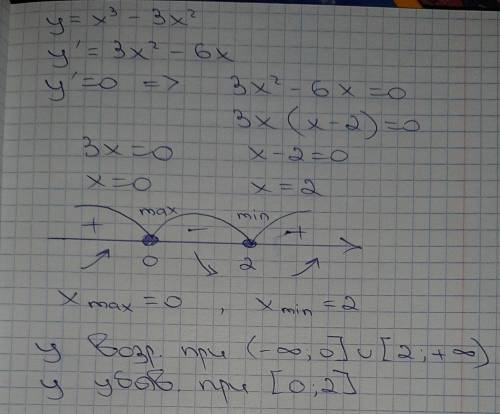 y = x³ - 3x²
y' = 3x² - 6x
y' = 0 => 3x² - 6x = 0
3x(x-2)=0
3x=0 x-2=0
x=0 x=2
+ max - min +
0 2
x max = 0 , x min = 2
y возр. при (-∞,0]∪[2;+∞)
y убыв. при [0;2]